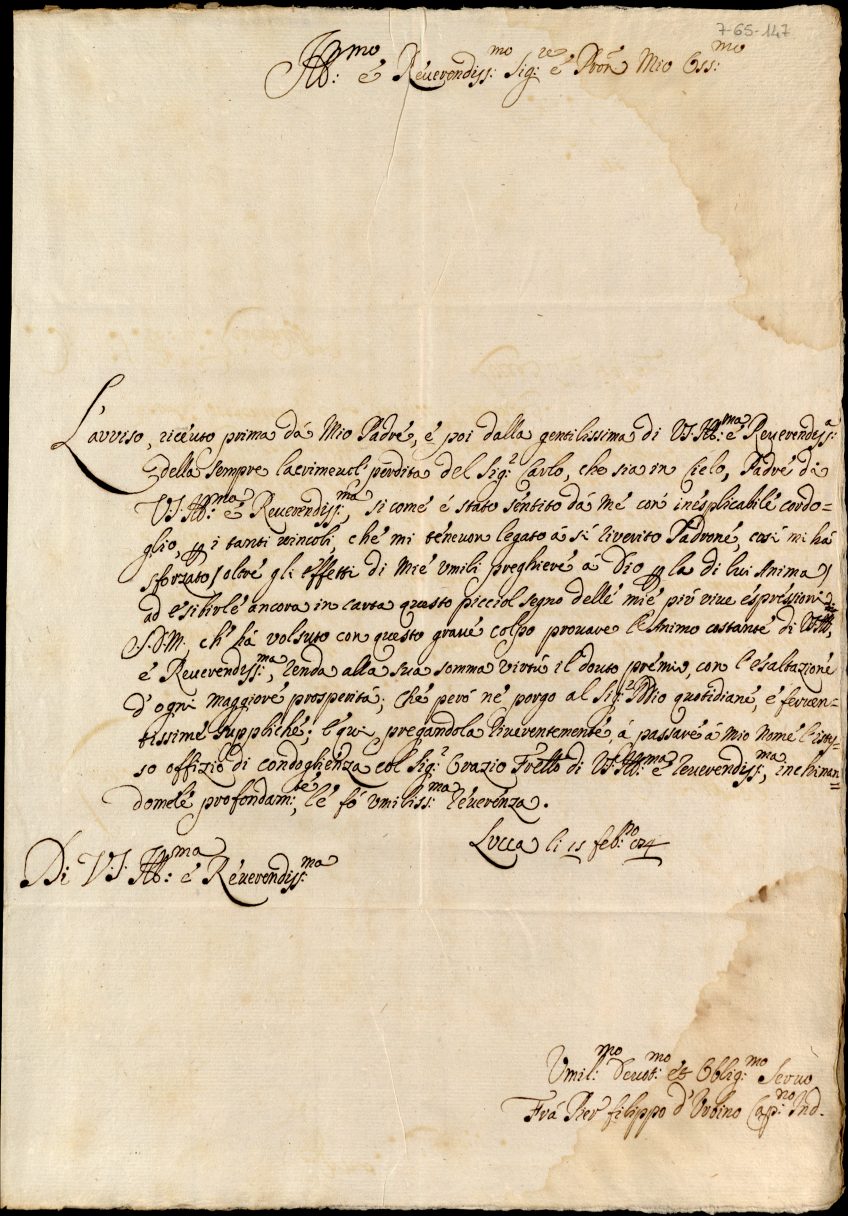 7-65-147
Ill:mo é Reuerendiss:mo Sig:re é Pron Mio Oss:mo
L'auuiso, riceuto prima dá Mio Padré, é poi dalla gentilissima di VS. Ill:ma é Reuerendiss:a
della sempre lacrimeuol perdita del Sig:r Carlo, che sia in Cielo, Padré di
VS. Ill:ma é Reuerendiss:ma, si comé é stato sentito dá mé con inesplicabilé cordo=
glio, p i tanti vincoli, ché mi teneuon legato á sí riuerito Padroné, cosí mi há
sforzato (oltré gli effetti di mié vmili preghieré á Dio p la di lui Anima)
ad esibirlé ancora in carta questo picciol segno dellé mié piú viue espressioni.
S.D.M., ch' há volsuto con questo graué colpo prouare l'Animo costanté di VS. Ill:
é Reuerendiss:ma, renda alla sua somma virtú il douto prémio, con l'esaltazioné
d'ogni maggioré prosperitá; Ché peró né porgo al Sig:r Iddio quotidiané, é feruen=
tissimé suppliché; é qui pregandola riuerentementé, á passaré á mio nomé l'istes=
so offizio di condoglienza col Sig:r Orazio Fretto di VS. Ill:ma é reuerendiss:ma, inchinan=
domelé profondam:té, lé fó vmiliss:ma reuerenza.
Lucca li 15 feb:ro 1724
Di VS. Ill:ma é Reuerendiss:ma
Vmil:mo Deuot:mo et Oblig:mo Seruo
Frá Pier filippo d'Vrbino Cap:no Ind.